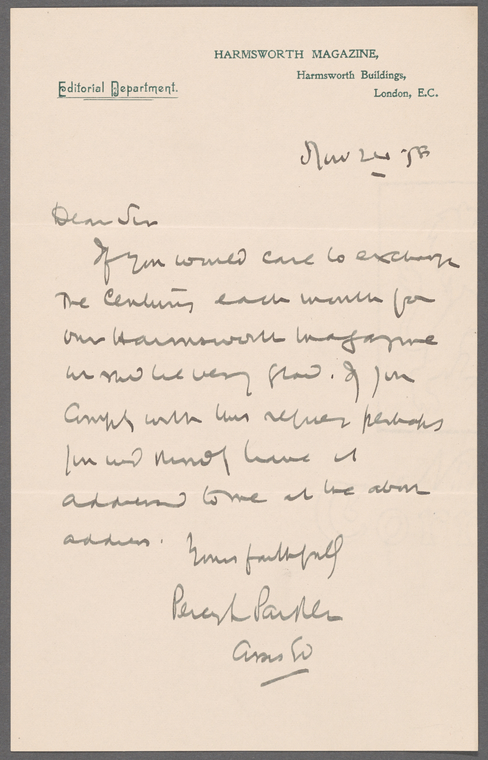 HARMSWORTH MAGAZINE,
Harmsworth Buildings,
London, E.C.
Editorial Department.
Nov 24 98
Dear Sir
If you would care to exchange
the Century each month for
our Harmsworth Magazine
we shd be very glad. If you
comply with this request perhaps
you will kindly have it
addressed to me at the above
address.
Yours faithfully
Percy L Parker
Asst Ed